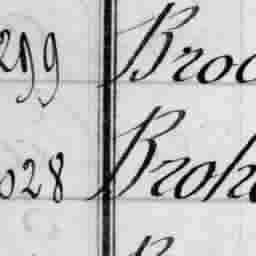 299 Broc
028 Broh